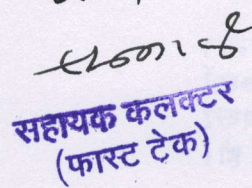 सहायक कलक्टर
(फास्ट टेक)